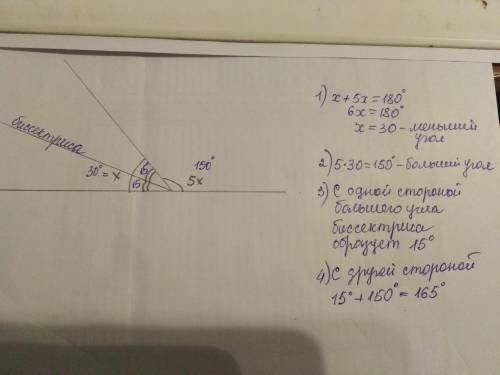 биссектриса
30° = x
15
15
150°
5x
1) x + 5x = 180°
6x = 180°
x = 30 - меньший
угол
2) 5·30 = 150° - больший угол
3) С одной стороной
большего угла
биссектриса
образует 15°
4) С другой стороной
15° + 150° = 165°